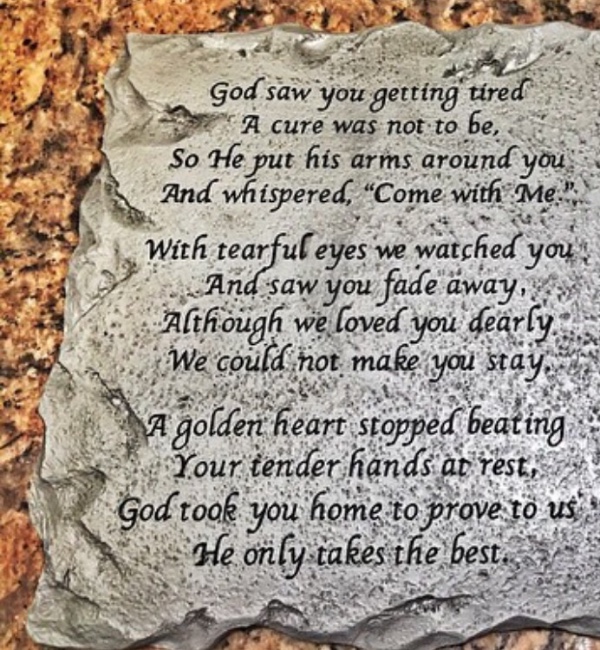 God saw you getting tired
A cure was not to be,
So He put his arms around you
And whispered, “Come with Me.”
With tearful eyes we watched you
And saw you fade away,
Although we loved you dearly
We could not make you stay.
A golden heart stopped beating
Your tender hands at rest,
God took you home to prove to us
He only takes the best.